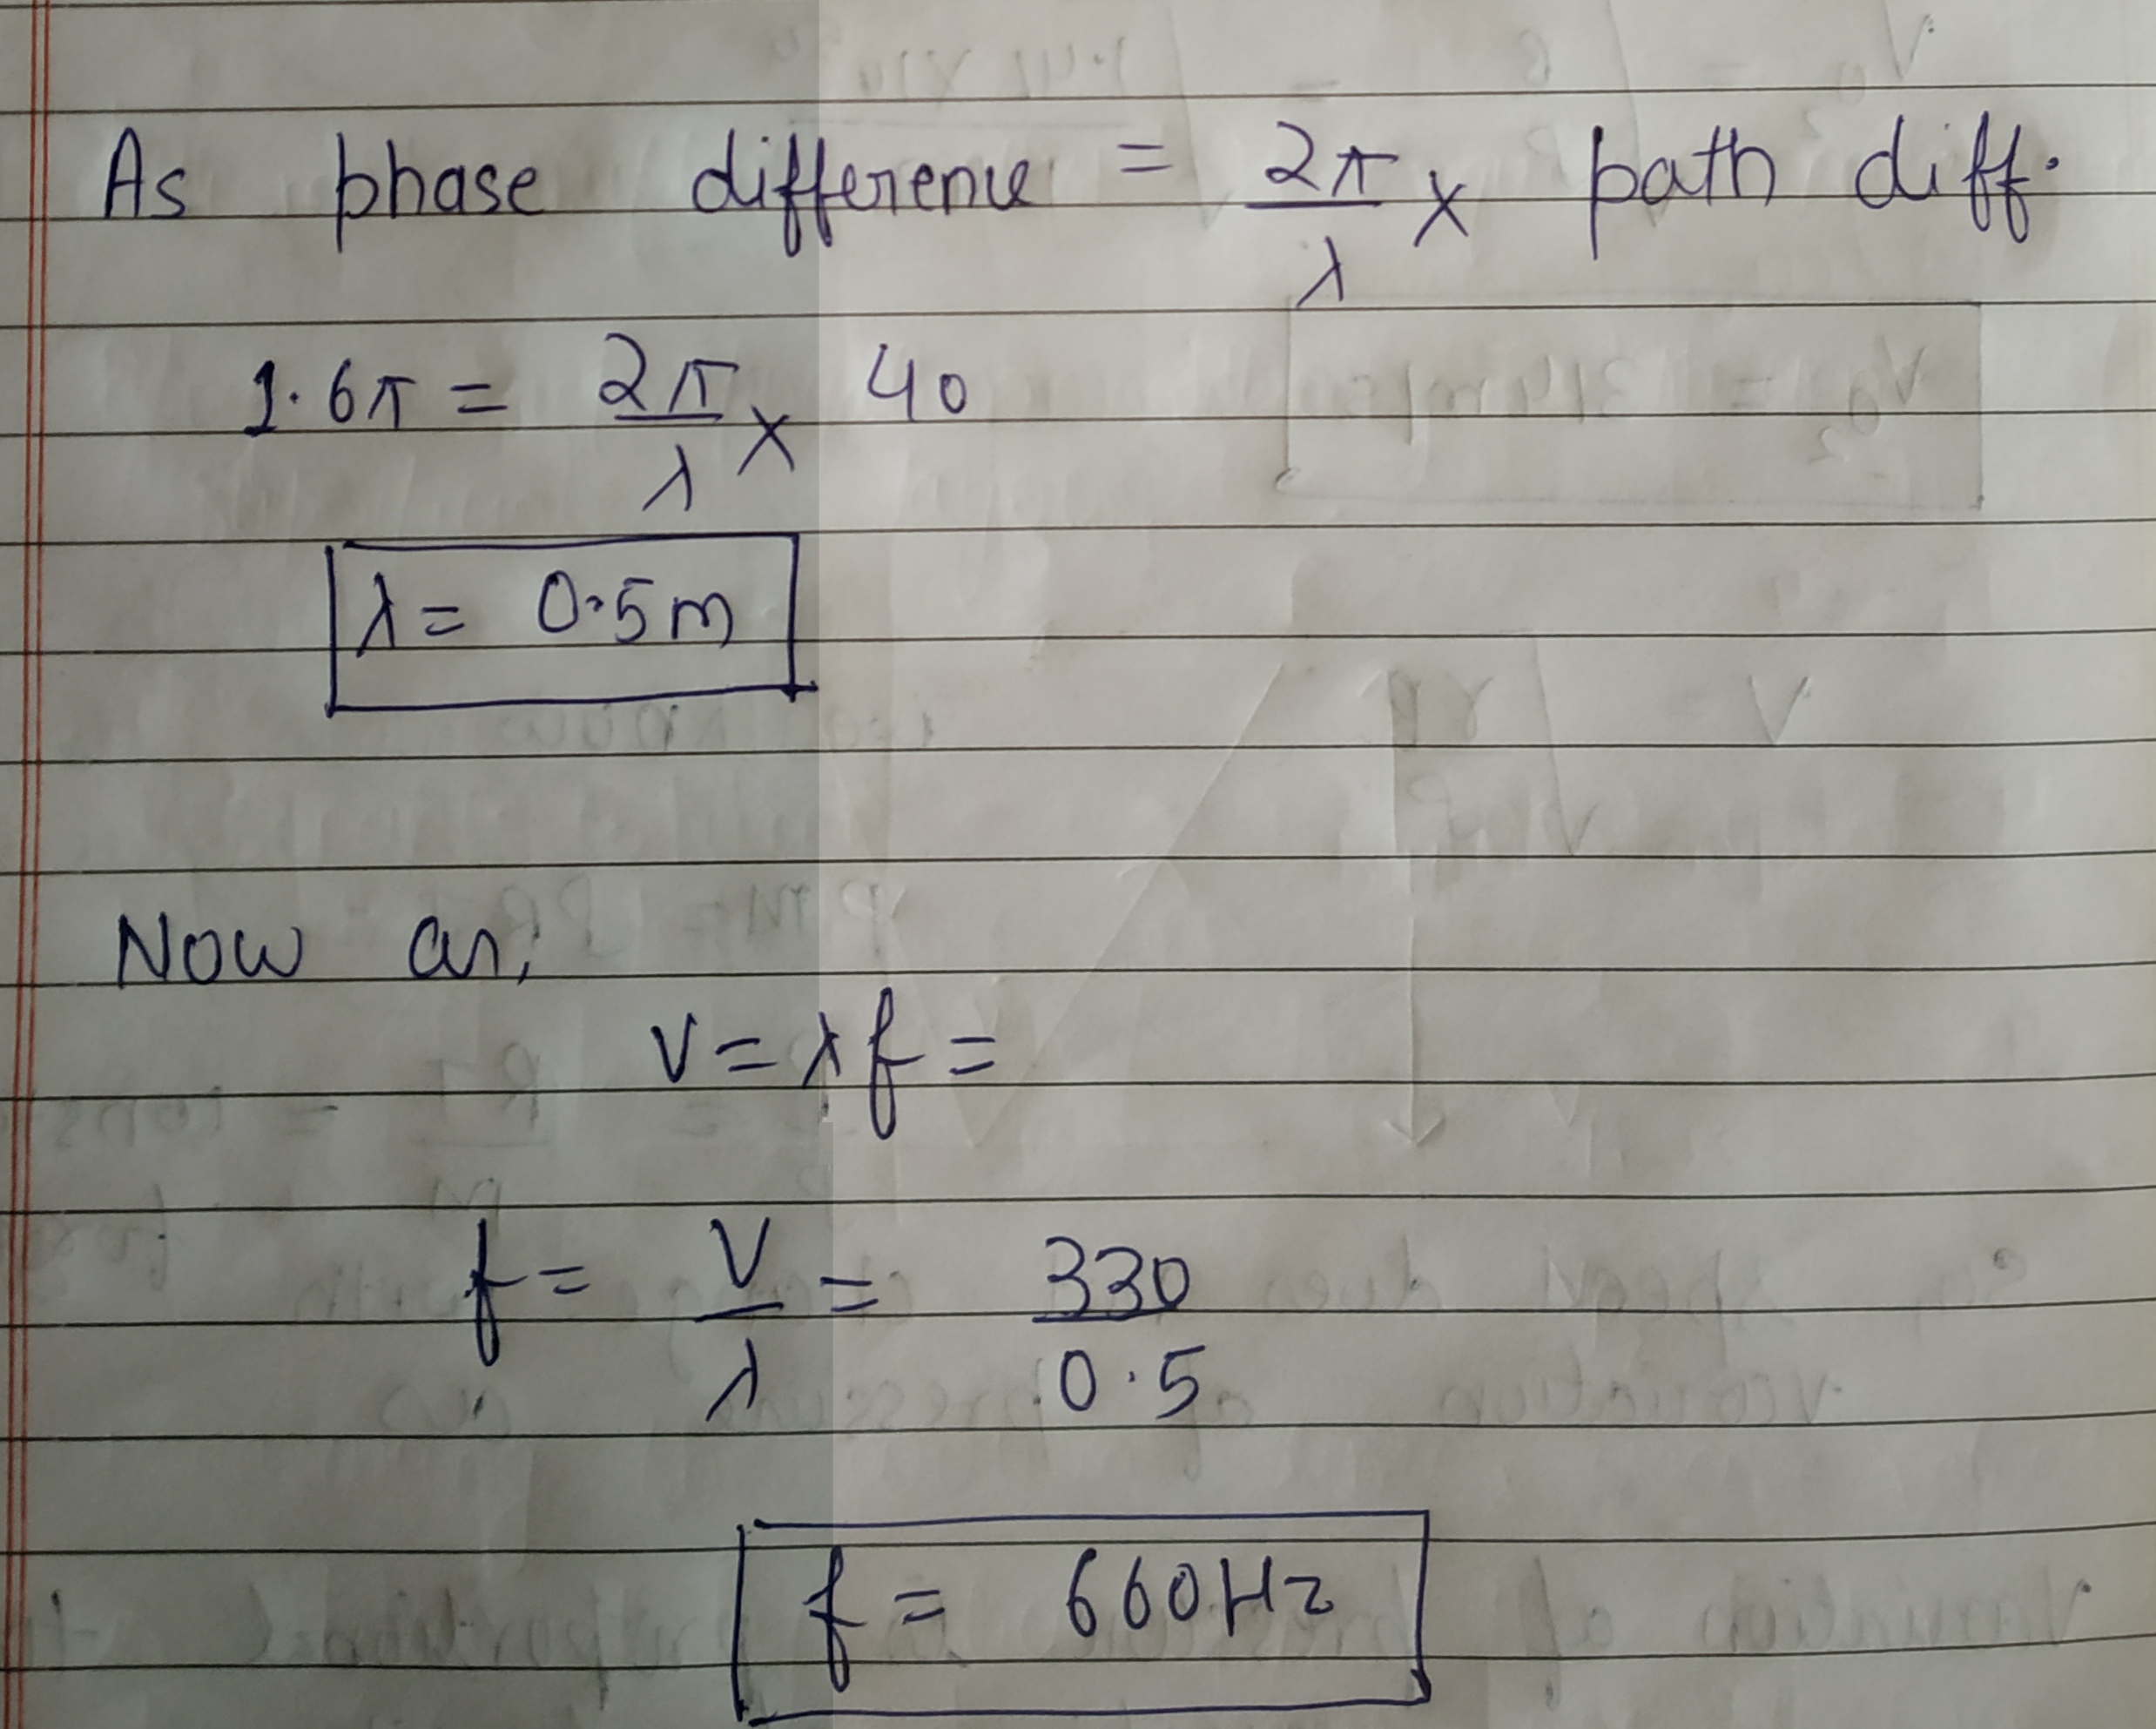 As phase difference = 2π/λ × path diff.
1.6π = 2π/λ × 40
λ = 0.5m
Now as,
V = λf =
f = V/λ = 330/0.5
f = 660Hz